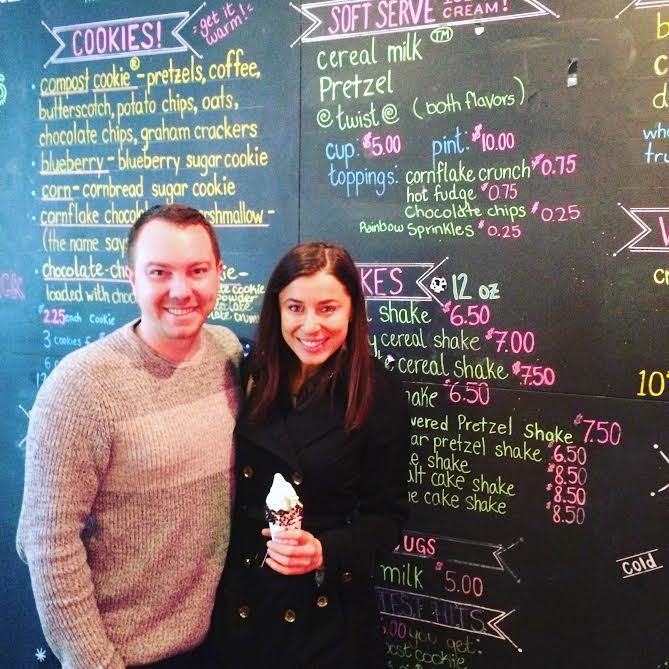 COOKIES!
get it
warm!
compost cookie® - pretzels, coffee,
butterscotch, potato chips, oats,
chocolate chips, graham crackers
blueberry - blueberry sugar cookie
corn - cornbread sugar cookie
cornflake marshmallow -
(the name say
chocolate-
loaded with
$2.25 each cookie
3 cookies
SOFT SERVE
CREAM!
cereal milk ™
Pretzel
@twist@ (both flavors)
cup: $5.00 pint: $10.00
toppings: cornflake crunch $0.75
hot fudge $0.75
Chocolate chips $0.25
Rainbow Sprinkles $0.25
KES 12 oz
shake $6.50
y cereal shake $7.00
cereal shake $7.50
hake $6.50
vered Pretzel Shake $7.50
ar pretzel shake $6.50
e shake $8.50
lt cake shake $8.50
ne cake shake $8.50
UGS
milk $5.00
you get:
ost cookie
cold